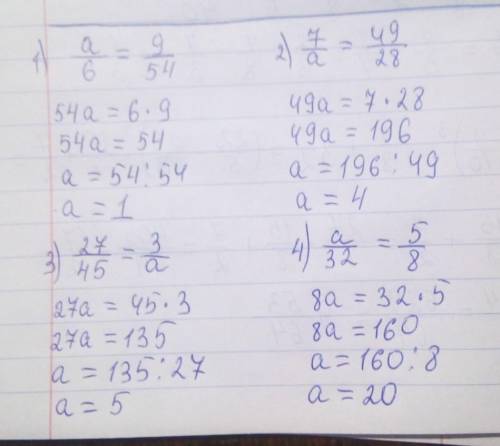 1) a/6 = 9/54
54a = 6·9
54a = 54
a = 54:54
a = 1
2) 7/a = 49/28
49a = 7·28
49a = 196
a = 196:49
a = 4
3) 27/45 = 3/a
27a = 45·3
27a = 135
a = 135:27
a = 5
4) a/32 = 5/8
8a = 32·5
8a = 160
a = 160:8
a = 20